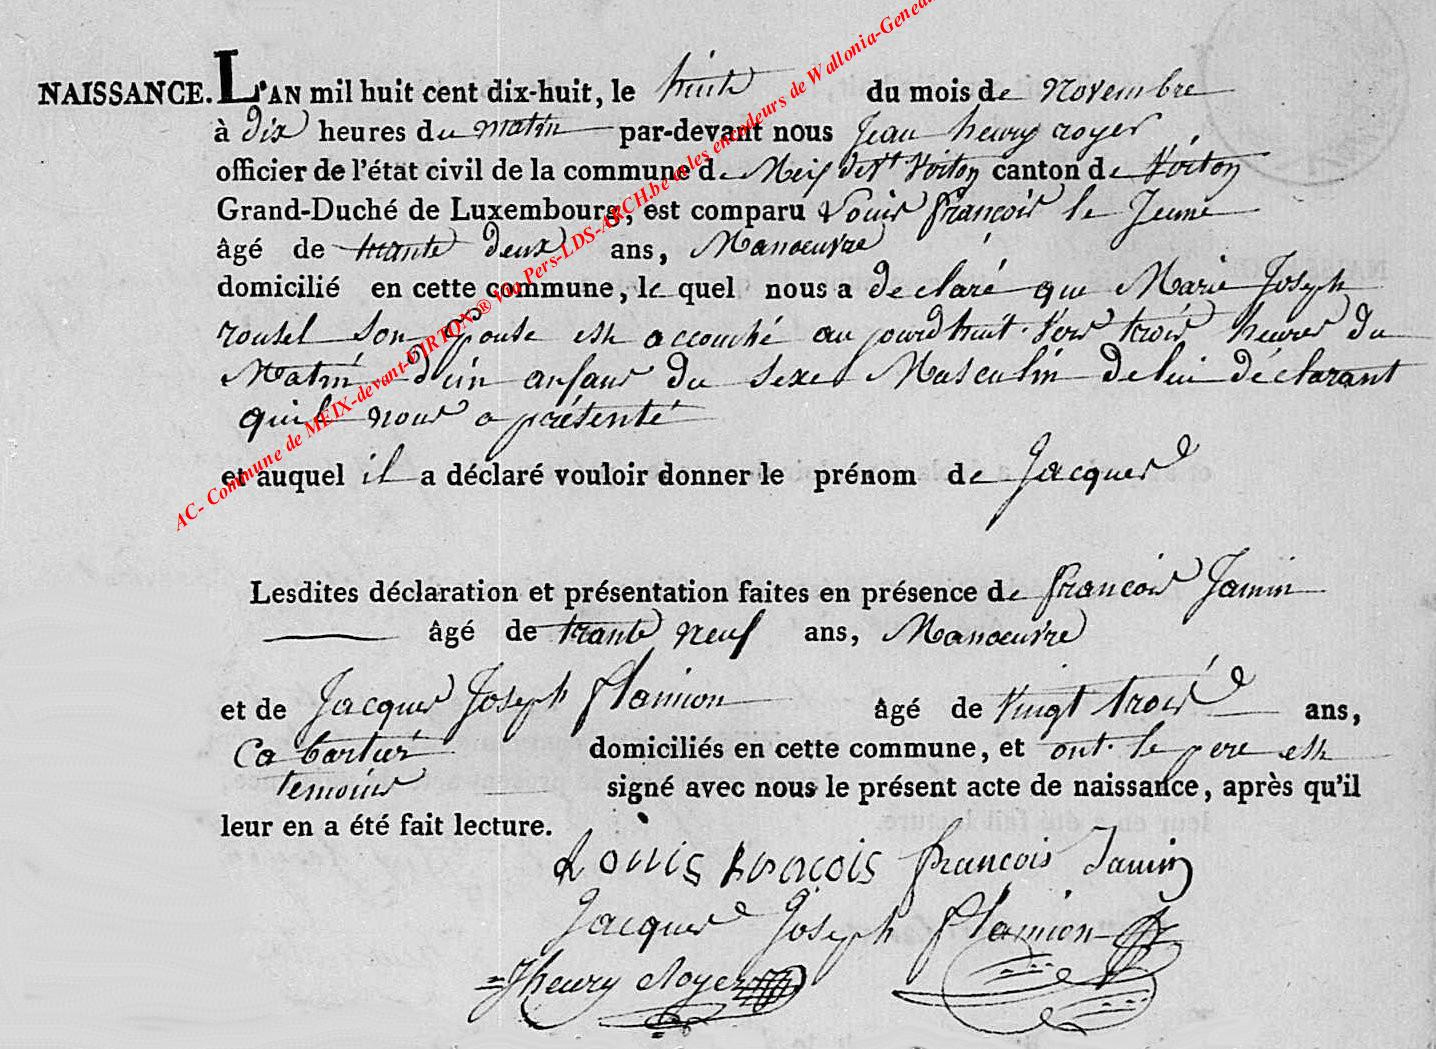 NAISSANCE. L'AN mil huit cent dix-huit, le huite du mois de novembre
à dix heures du matin par-devant nous Jean henry royer
officier de l'état civil de la commune de Meix devt Virton canton de Virton
Grand-Duché de Luxembourg, est comparu Louis françois le Jeune
âgé de trante deux ans, Manoeuvre
domicilié en cette commune, le quel nous a declaré que Marie Joseph
rousel son epouse est accouché au jourdhuit vers trois heures du
Matin d'un anfant du sexe Masculin de lui déclarant
quil nous a présenté
et auquel il a déclaré vouloir donner le prénom de Jacques
Lesdites déclaration et présentation faites en présence de francois Jamin
âgé de trante neuf ans, Manoeuvre
et de Jacques Joseph flamion âgé de vingt trois ans,
Cabartier domiciliés en cette commune, et ont le pere est
temoins signé avec nous le présent acte de naissance, après qu'il
leur en a été fait lecture.
Louis francois francois Jamin
Jacques Joseph flamion
Jhenry Royer
AC- Commune de MEIX-devant-VIRTON ® Via Pers-LDS-ARCH.be & les encodeurs de Wallonia-Genea